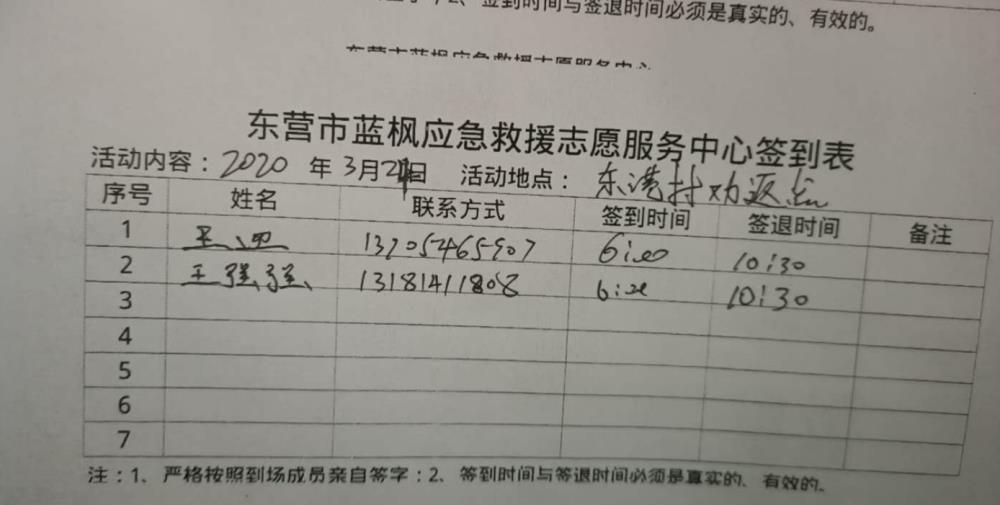 2、签到时间与签退时间必须是真实的、有效的。
东营市蓝枫应急救援志愿服务中心
东营市蓝枫应急救援志愿服务中心签到表
活动内容：2020 年 3月 日 活动地点：东港村劝返点
序号 姓名 联系方式 签到时间 签退时间 备注
1 王 13705465907 6:00 10:30
2 王强强 13181411808 6:00 10:30
3
4
5
6
7
注：1、严格按照到场成员亲自签字；2、签到时间与签退时间必须是真实的、有效的。